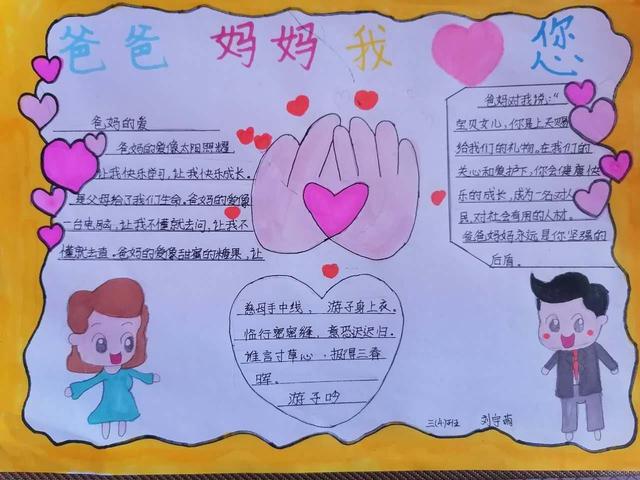 爸爸 妈妈 我 您
爸妈的爱
爸妈的爱像太阳照耀
让我快乐学习，让我快乐成长。
是父母给了我们生命。爸妈的爱像
一台电脑，让我不懂就去问，让我不
懂就去查。爸妈的爱像甜蜜的糖果，让
爸妈对我说："
宝贝女儿，你是上天赐
给我们的礼物。在我们的
关心和爱护下，你会健康快
乐的成长，成为一名对人
民，对社会有用的人材。
爸爸妈妈永远是你坚强的
后盾。
慈母手中线， 游子身上衣。
临行密密缝，意恐迟迟归。
谁言寸草心，报得三春
晖。
游子吟
三(4)班 刘宇萌